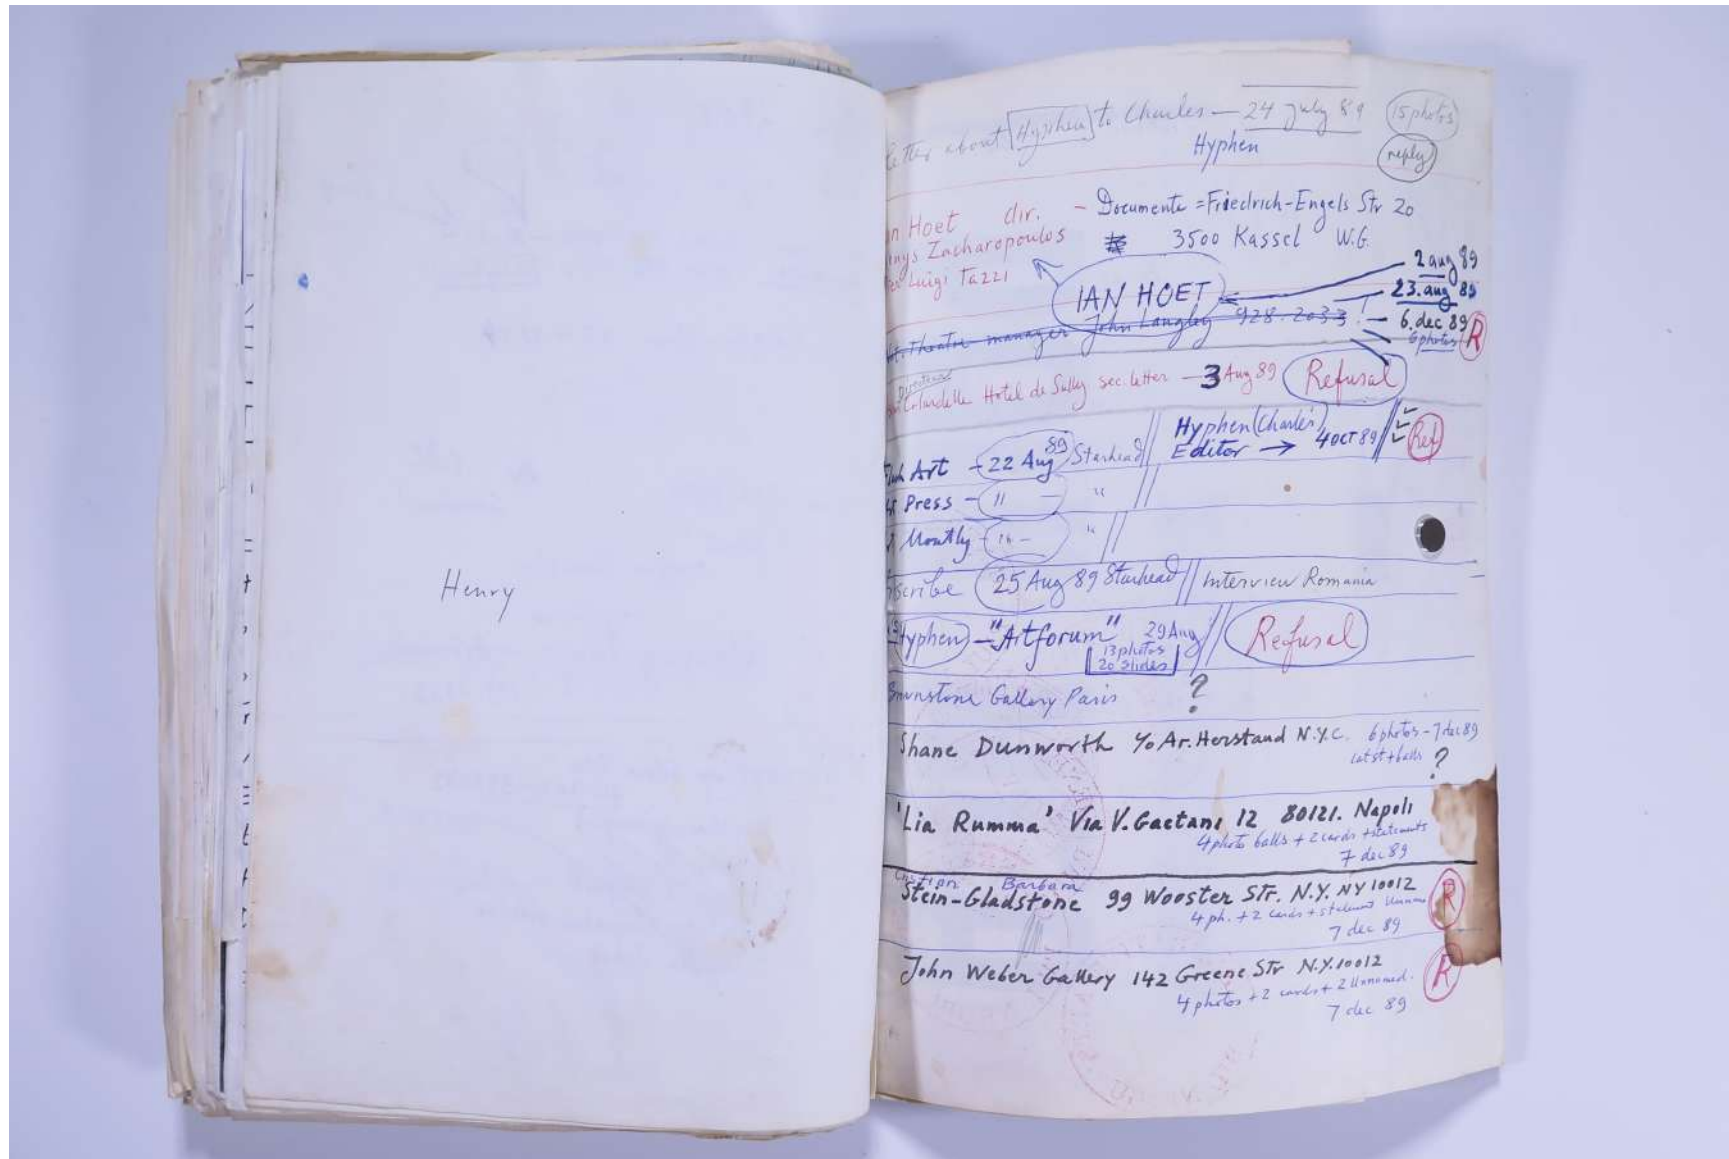 Henry
letter about Hyphen to Charles — 24 July 89 15 photos
Hyphen reply
an Hoet dir. — Documenta = Friedrich-Engels Str 20
nys Zacharopoulos 3500 Kassel W.G.
er Luigi Tazzi
IAN HOET
2 aug 89
23. aug 89
6. dec 89 R
6 photos
Theatre manager John Langley 928.2033 !
Hotel de Sully sec. letter — 3 Aug 89 Refusal
Art — 22 Aug 89 Starhead // Hyphen (Charles) Editor → 4 OCT 89 // Ref
Press — 11 — "
Monthly — — "
scribe 25 Aug 89 Starhead // Interview Romania
Hyphen — "Artforum" 29 Aug // Refusal
13 photos
20 slides
Gallery Paris ?
Shane Dunworth c/o Ar. Herstand N.Y.C. 6 photos – 7 dec 89
?
'Lia Rumma' Via V. Gaetani 12 80121. Napoli
4 photo balls + 2 cards + statements
7 dec 89
Barbara
Stein-Gladstone 99 Wooster Str. N.Y. NY 10012 R
4 ph. + 2 cards + statement
7 dec 89
John Weber Gallery 142 Greene Str N.Y. 10012 R
4 photos + 2 cards + 2 Unnamed.
7 dec 89